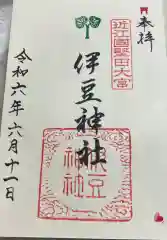 奉拝
近江國堅田大宮
伊豆神社
伊豆神社
令和六年六月十一日